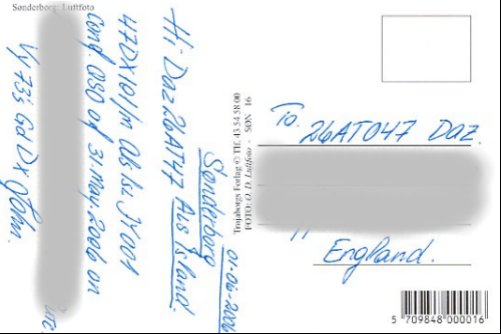 Sønderborg: Luftfoto
Sønderborg 01-06-2006
Hi Daz 26AT47 Als Island.
47DX101/m
Conf. QSO of 31-May-2006 on
UTC
Vy 73's Gd Dx John.
Trojaborgs Forlag © Tlf. 43 54 58 00
FOTO: O. D. Luftfoto - SØN 16
To. 26AT047 Daz.
England.
5 709848 000016